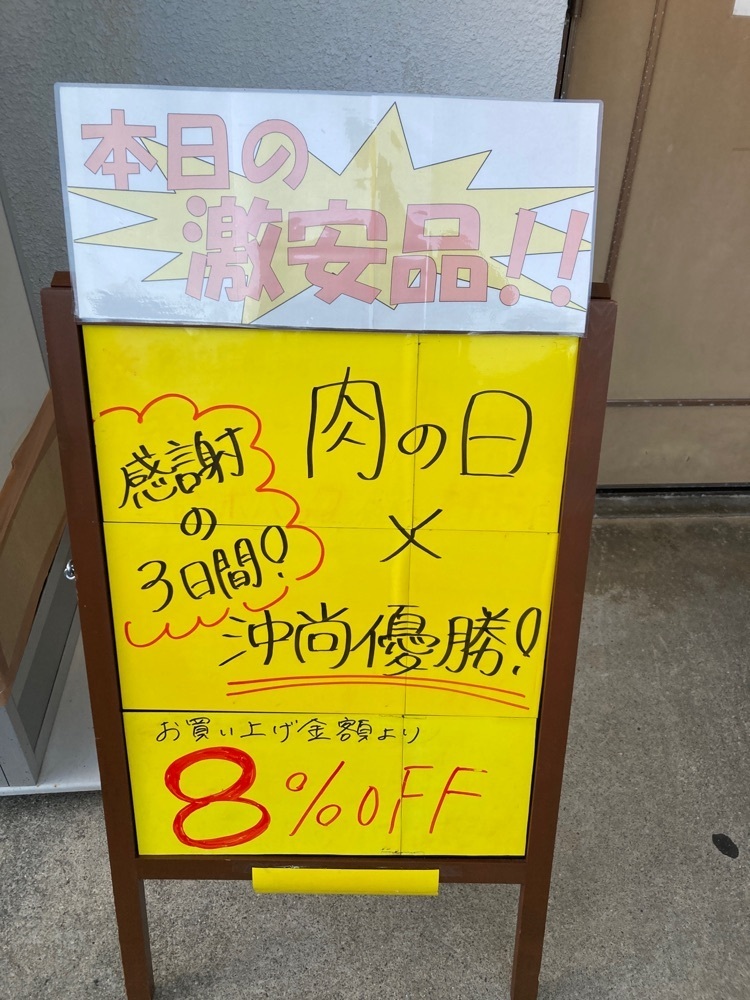 本日の
激安品!!
肉の日
×
沖尚優勝!
感謝
の
3日間!
お買い上げ金額より
8%OFF